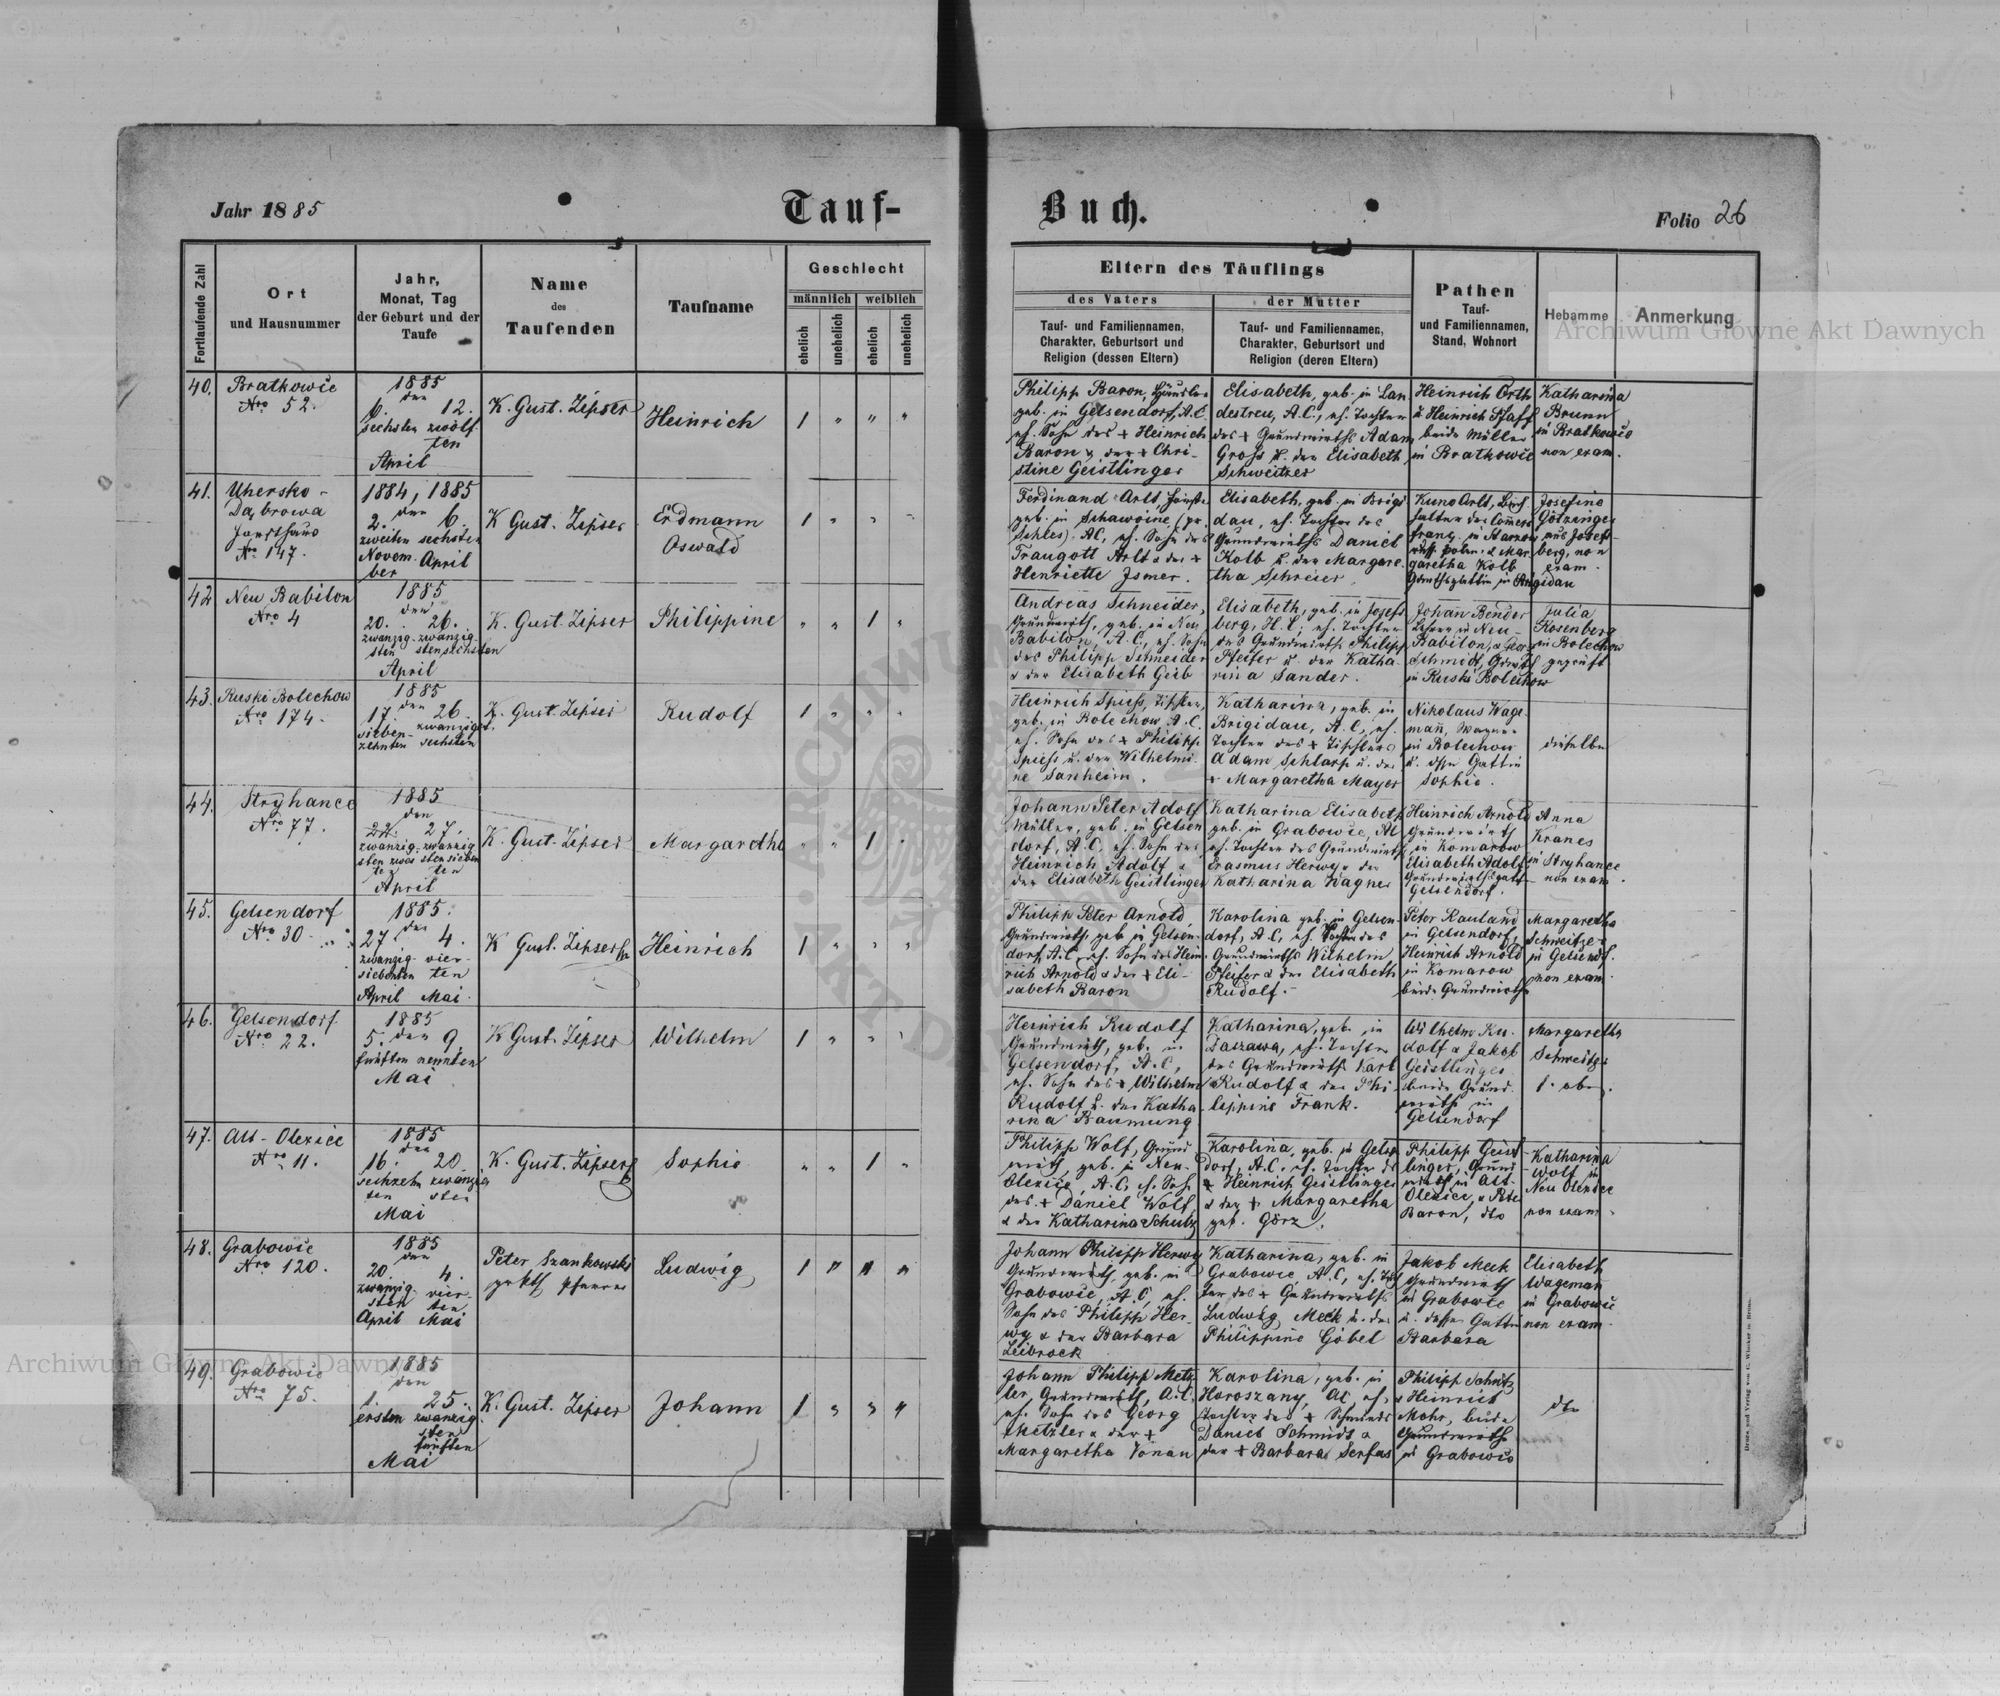 Jahr 1885
Tauf-
Buch.
Folio 26
Fortlaufende Zahl
Ort
und Hausnummer
Jahr,
Monat, Tag
der Geburt und der
Taufe
Name
des
Taufenden
Taufname
Geschlecht
männlich
weiblich
ehelich
unehelich
ehelich
unehelich
Eltern des Täuflings
des Vaters
der Mutter
Tauf- und Familiennamen,
Charakter, Geburtsort und
Religion (dessen Eltern)
Tauf- und Familiennamen,
Charakter, Geburtsort und
Religion (deren Eltern)
Pathen
Tauf-
und Familiennamen,
Stand, Wohnort
Hebamme
Anmerkung
Archiwum Główne Akt Dawnych
40.
Bratkowie
Nro 52.
1885
den
6. 12.
sechsten zwölf-
ten
April
K. Gust. Zipser
Heinrich
1 " " "
Philipp Baron, Häusler
geb. in Gelsendorf, A.C
eh. Sohn des + Heinrich
Baron u. der + Chri-
stine Geistlinger
Elisabeth, geb. in Lan
destreu, A.C., eh. Tochter
des + Grundwirths Adam
Gross u. der Elisabeth
Schweitzer
Heinrich Orth
u Heinrich Pfaff
beide Müller
in Bratkowie
Katharina
Brunn
in Bratkowie
non exam.
41.
Uhersko-
Dąbrowa
Forsthaus
Nro 147.
1884, 1885
den
2. 6.
zweiten sechsten
Novem- April
ber
K Gust. Zipser
Erdmann
Oswald
1 " " "
Ferdinand Arlt, Förster
geb. in Schawoine (pr.
Schles). AC, eh. Sohn des
Traugott Arlt u der +
Henriette Ismer.
Elisabeth, geb. in Brigi
dau, eh. Tochter des
Grundwirths Daniel
Kolb u. der Margare-
tha Schreier.
Kuno Arlt,
in
russ. polen. u Mar
garetha Kolb
in Brigidau
Josefine
Götzinger
aus Josef-
berg, non
exam.
42
Neu Babilon
Nro 4
1885
den
20. 26.
zwanzig- zwanzig-
sten stensechsten
April
K. Gust. Zipser
Philippine
" " 1 "
Andreas Schneider,
Grundwirth, geb. in Neu
Babilon, A.C., eh. Sohn
des Philipp Schneider
u der Elisabeth Geib
Elisabeth, geb. in Josefs
berg, H.C., eh. Tochter
des Grundwirths Philipp
Pfeifer u. der Katha-
rina Sander.
Johan Bender
Lehrer in Neu-
Babilon, u
Schmidt,
in Ruski Bolechow
Julia
Rosenberg
in Bolechow
geprüft
43.
Ruski Bolechow
Nro 174.
1885
den
17. 26.
sieben- zwanzigst.
zehnten sechsten
K. Gust. Zipser
Rudolf
1 " " "
Heinrich Spiess, Tischler,
geb. in Bolechow A.C.
eh. Sohn des + Philipp
Spiess u. der Wilhelmi-
ne Sanheim.
Katharina, geb. in
Brigidau, A.C, eh.
Tochter des + Tischlers
Adam Schlarp u. der
+ Margaretha Mayer
Nikolaus Wage-
mañ, Wagner
in Bolechow
u. dssn Gattin
Sophie.
dieselbe
44.
Stryhance
Nro 77.
1885
den
22. 27.
zwanzig- zwanzig
sten zwei stensieben
ten ten
April
K. Gust. Zipser
Margarethe
" " 1 "
Johann Peter Adolf
Müller, geb. in Gelsen
dorf, A.C, eh. Sohn des
Heinrich Adolf u
der Elisabeth Geistlinger
Katharina Elisabeth
geb. in Grabowie, AC
eh. Tochter des Grundwirths
Erasmus Herwy u der
Katharina Wagner
Heinrich Arnold
Grundwirth
in Komarow
Elisabeth Adolf
Grundwirthsgatt
Gelsendorf.
Anna
Kranes
in Stryhance
non exam.
45.
Gelsendorf
Nro 30
1885.
den
27. 4.
zwanzig- vier-
siebenten ten
April Mai
K Gust. Zipser
Heinrich
1 " " "
Philipp Peter Arnold
Grundwirth, geb in Gelsen-
dorf, A.C. eh. Sohn des Hein-
rich Arnold u der + Eli-
sabeth Baron
Karolina geb. in Gelsen-
dorf, A.C, eh. Tochter des
Grundwirths Wilhelm
Pfeifer u der Elisabeth
Rudolf.
Peter Rauland
in Gelsendorf,
Heinrich Arnold
in Komarow
beide Grundwirthe
Margaretha
Schweitzer
in Gelsendf.
non exam.
46.
Gelsendorf
Nro 22.
1885
5. den 9.
fünften neunten
Mai
K Gust. Zipser
Wilhelm
1 " " "
Heinrich Rudolf
Grundwirth, geb. in
Gelsendorf, A.C.,
eh. Sohn des + Wilhelm
Rudolf u. der Katha-
rina Baumung
Katharina, geb. in
Daszawa, eh. Tochter
des Grundwirths Karl
Rudolf u der Phi-
lippine Frank.
Wilhelm Ru-
dolf u Jakob
Geistlinger
beide Grund-
wirthe in
Gelsendorf
Margaretha
Schweitzer
s. oben.
47.
Alt-Olexice
Nro 11.
1885
den
16. 20.
sechzehn zwanzig
ten sten
Mai
K. Gust. Zipser
Sophie
" " 1 "
Philipp Wolf, Grund
wirth, geb. in Neu-
Olexice, A.C, eh. Sohn
des + Daniel Wolf
u der Katharina Schulz
Karolina, geb. in Gelsen
dorf, A.C. eh. Tochter des
+ Heinrich Geistlinger
u der + Margaretha
geb. Görz.
Philipp Geist-
linger, Grund
wirth in Alt-
Olexice, u Peter
Baron, dto
Katharina
Wolf in
Neu Olexice
non exam.
48.
Grabowie
Nro 120.
1885
den
20. 4.
zwanzig- vier-
sten ten
April Mai
Peter Szankowski
Pfarrer
Ludwig
1 " " "
Johann Philipp Herwy
Grundwirth, geb. in
Grabowie, A.C, eh.
Sohn des Philipp Her-
wy u der Barbara
Leibrock
Katharina, geb. in
Grabowie, A.C, eh. Toch
ter des + Grundwirths
Ludwig Meck u. der
Philippine Göbel
Jakob Meck
Grundwirth
in Grabowie
u. dessen Gattin
Barbara
Elisabeth
Wageman
in Grabowie
non exam.
Archiwum Główne Akt Dawnych
49.
Grabowie
Nro 75.
1885
den
1. 25.
ersten zwanzig-
sten
fünften
Mai
K. Gust. Zipser
Johann
1 " " "
Johann Philipp Metz
ler, Grundwirth, A.C.
eh. Sohn des Georg
Metzler u der +
Margaretha Vonau
Karolina, geb. in
Horoszany, AC eh.
Tochter des + Schmieds
Daniel Schmidt u
der + Barbara Serfas
Philipp Schütz
u Heinrich
Mohr, beide
Grundwirthe
in Grabowie
dto